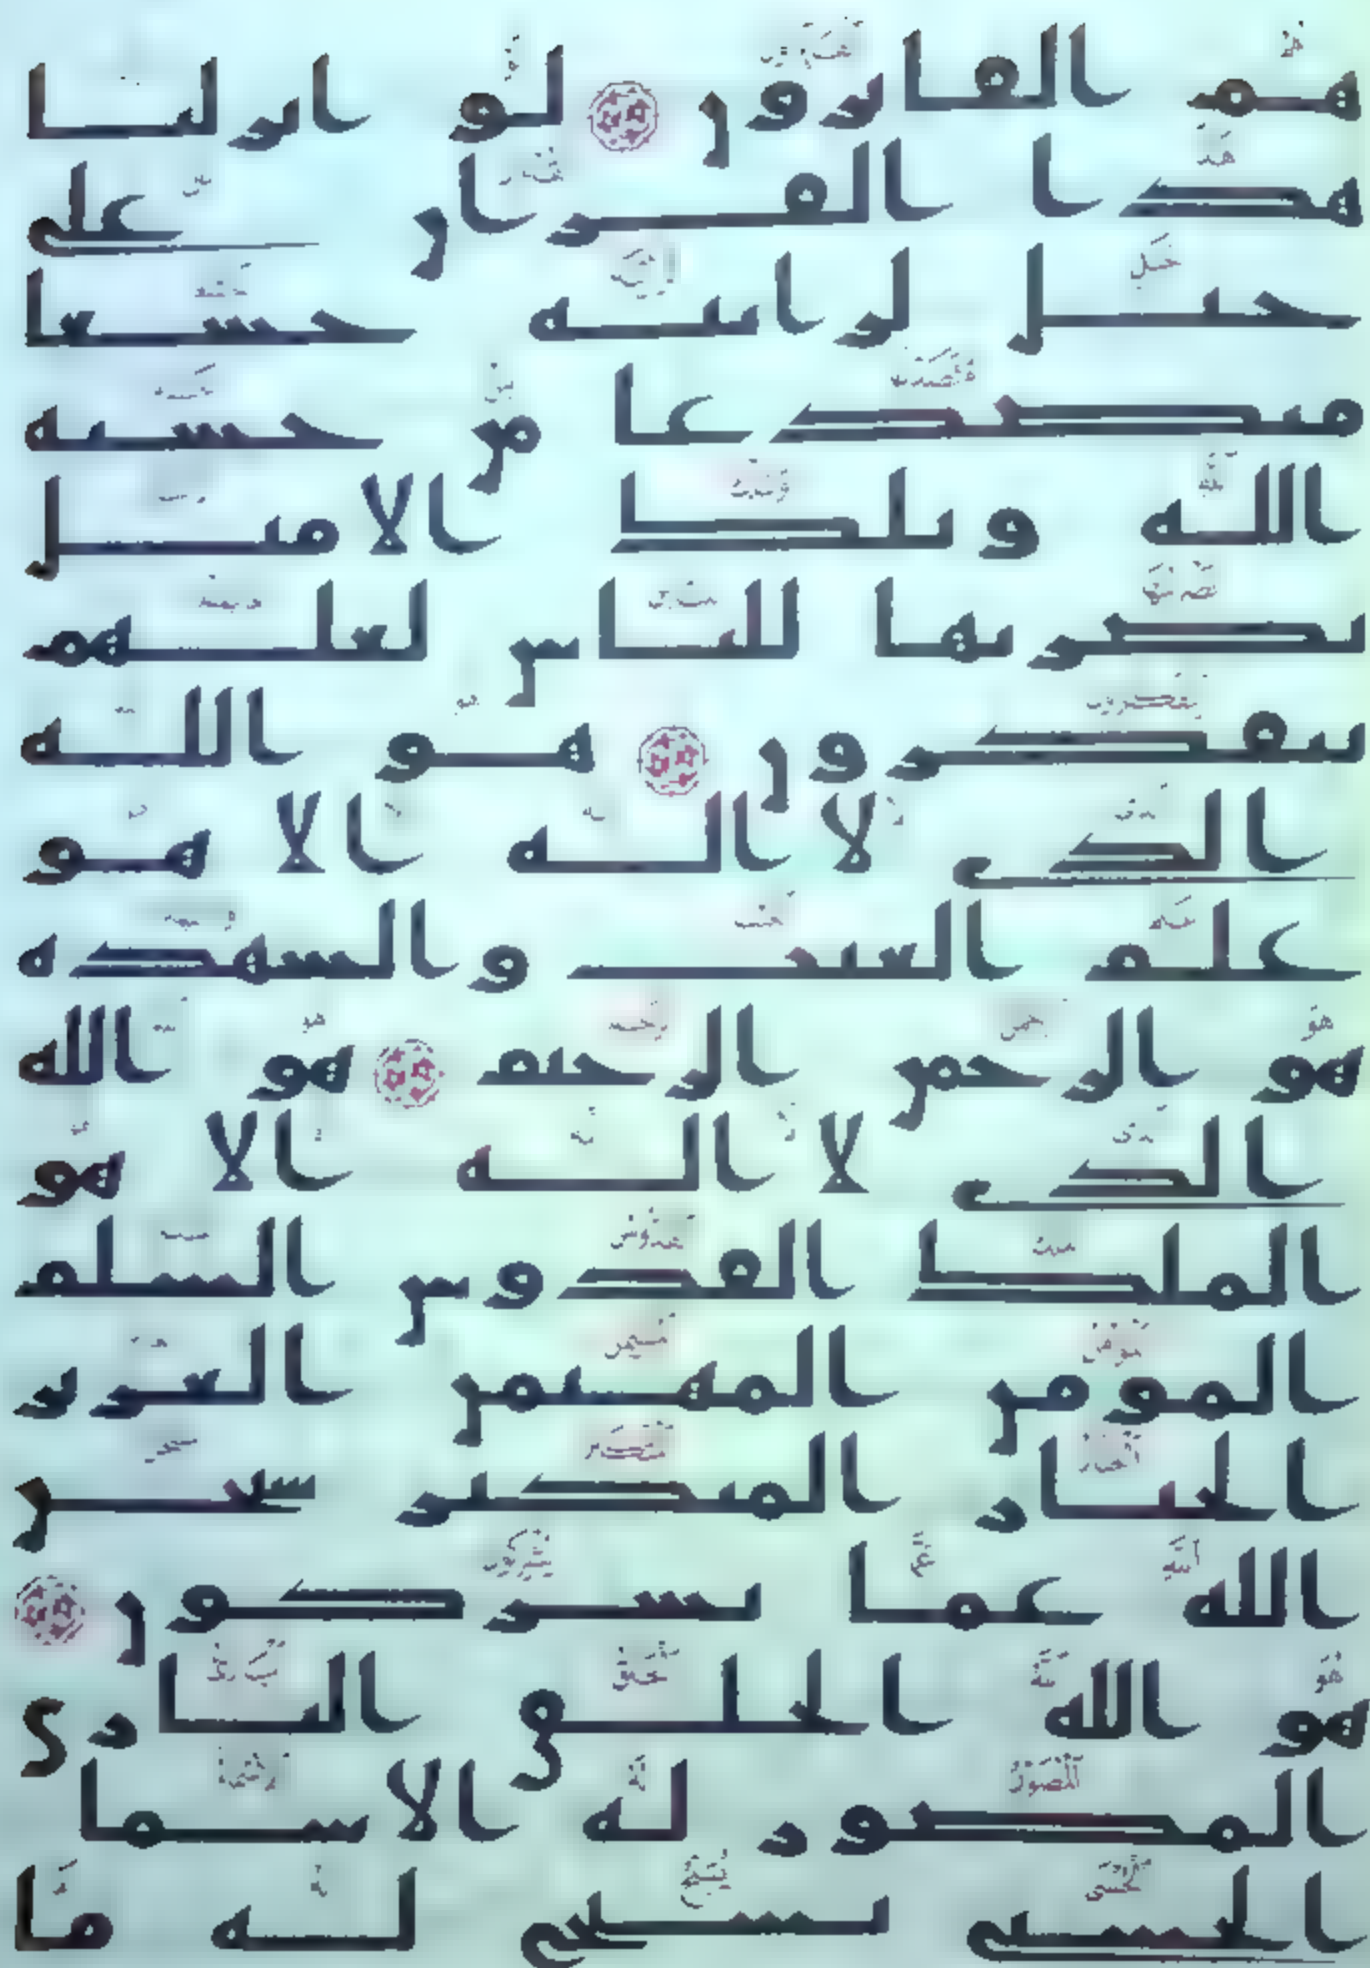 هم الفايزون لو انزلنا
هذا القران على
جبل لرايته خشعا
متصدعا من خشيه
الله وتلك الامثل
نضربها للناس لعلهم
يتفكرون هو الله
الذي لا اله الا هو
علم الغيب والشهده
هو الرحمن الرحيم هو الله
الذي لا اله الا هو
الملك القدوس السلم
المومن المهيمن العزيز
الجبار المتكبر سبحن
الله عما يشركون
هو الله الخلق البارى
المصور له الاسما
الحسنى يسبح له ما